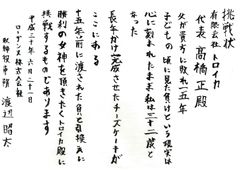 挑戦状
有限会社 トロイカ
代表 高橋正 殿
父が貴方に敗れ十五年
子どもの頃に見た負けという標字は
心に刻まれたまま私は三十二歳と
なった
長年かけ完成させたチーズケーキが
ここにある
十五年前に渡された負と引換えに
勝利の女神を頂きたくトロイカ殿に
挑戦するものであります
平成二十年六月二十一日
ローゲンス株式会社
取締役専務 渡辺昭太